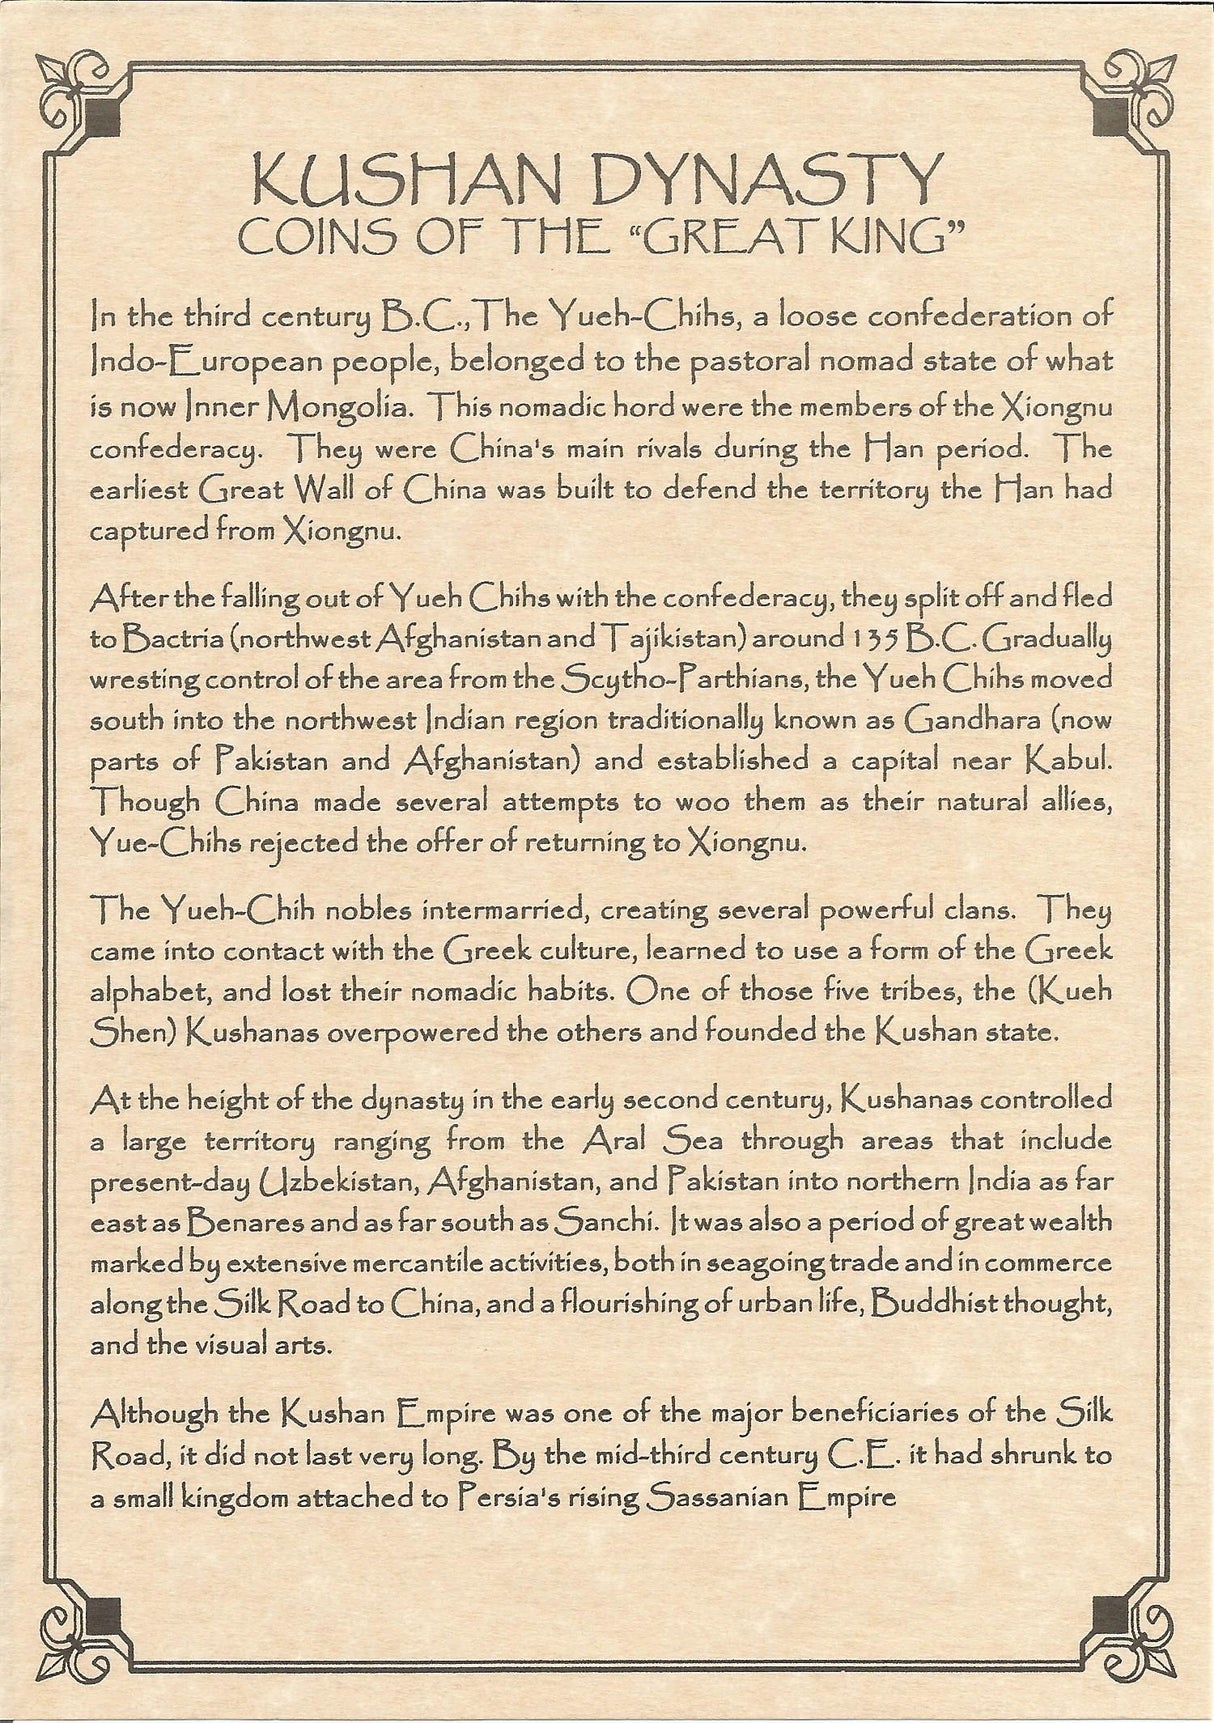 KUSHAN DYNASTY
COINS OF THE “GREAT KING”
In the third century B.C.,The Yueh-Chihs, a loose confederation of
Indo-European people, belonged to the pastoral nomad state of what
is now Inner Mongolia. This nomadic hord were the members of the Xiongnu
confederacy. They were China's main rivals during the Han period. The
earliest Great Wall of China was built to defend the territory the Han had
captured from Xiongnu.
After the falling out of Yueh Chihs with the confederacy, they split off and fled
to Bactria (northwest Afghanistan and Tajikistan) around 135 B.C. Gradually
wresting control of the area from the Scytho-Parthians, the Yueh Chihs moved
south into the northwest Indian region traditionally known as Gandhara (now
parts of Pakistan and Afghanistan) and established a capital near Kabul.
Though China made several attempts to woo them as their natural allies,
Yue-Chihs rejected the offer of returning to Xiongnu.
The Yueh-Chih nobles intermarried, creating several powerful clans. They
came into contact with the Greek culture, learned to use a form of the Greek
alphabet, and lost their nomadic habits. One of those five tribes, the (Kueh
Shen) Kushanas overpowered the others and founded the Kushan state.
At the height of the dynasty in the early second century, Kushanas controlled
a large territory ranging from the Aral Sea through areas that include
present-day Uzbekistan, Afghanistan, and Pakistan into northern India as far
east as Benares and as far south as Sanchi. It was also a period of great wealth
marked by extensive mercantile activities, both in seagoing trade and in commerce
along the Silk Road to China, and a flourishing of urban life, Buddhist thought,
and the visual arts.
Although the Kushan Empire was one of the major beneficiaries of the Silk
Road, it did not last very long. By the mid-third century C.E. it had shrunk to
a small kingdom attached to Persia's rising Sassanian Empire